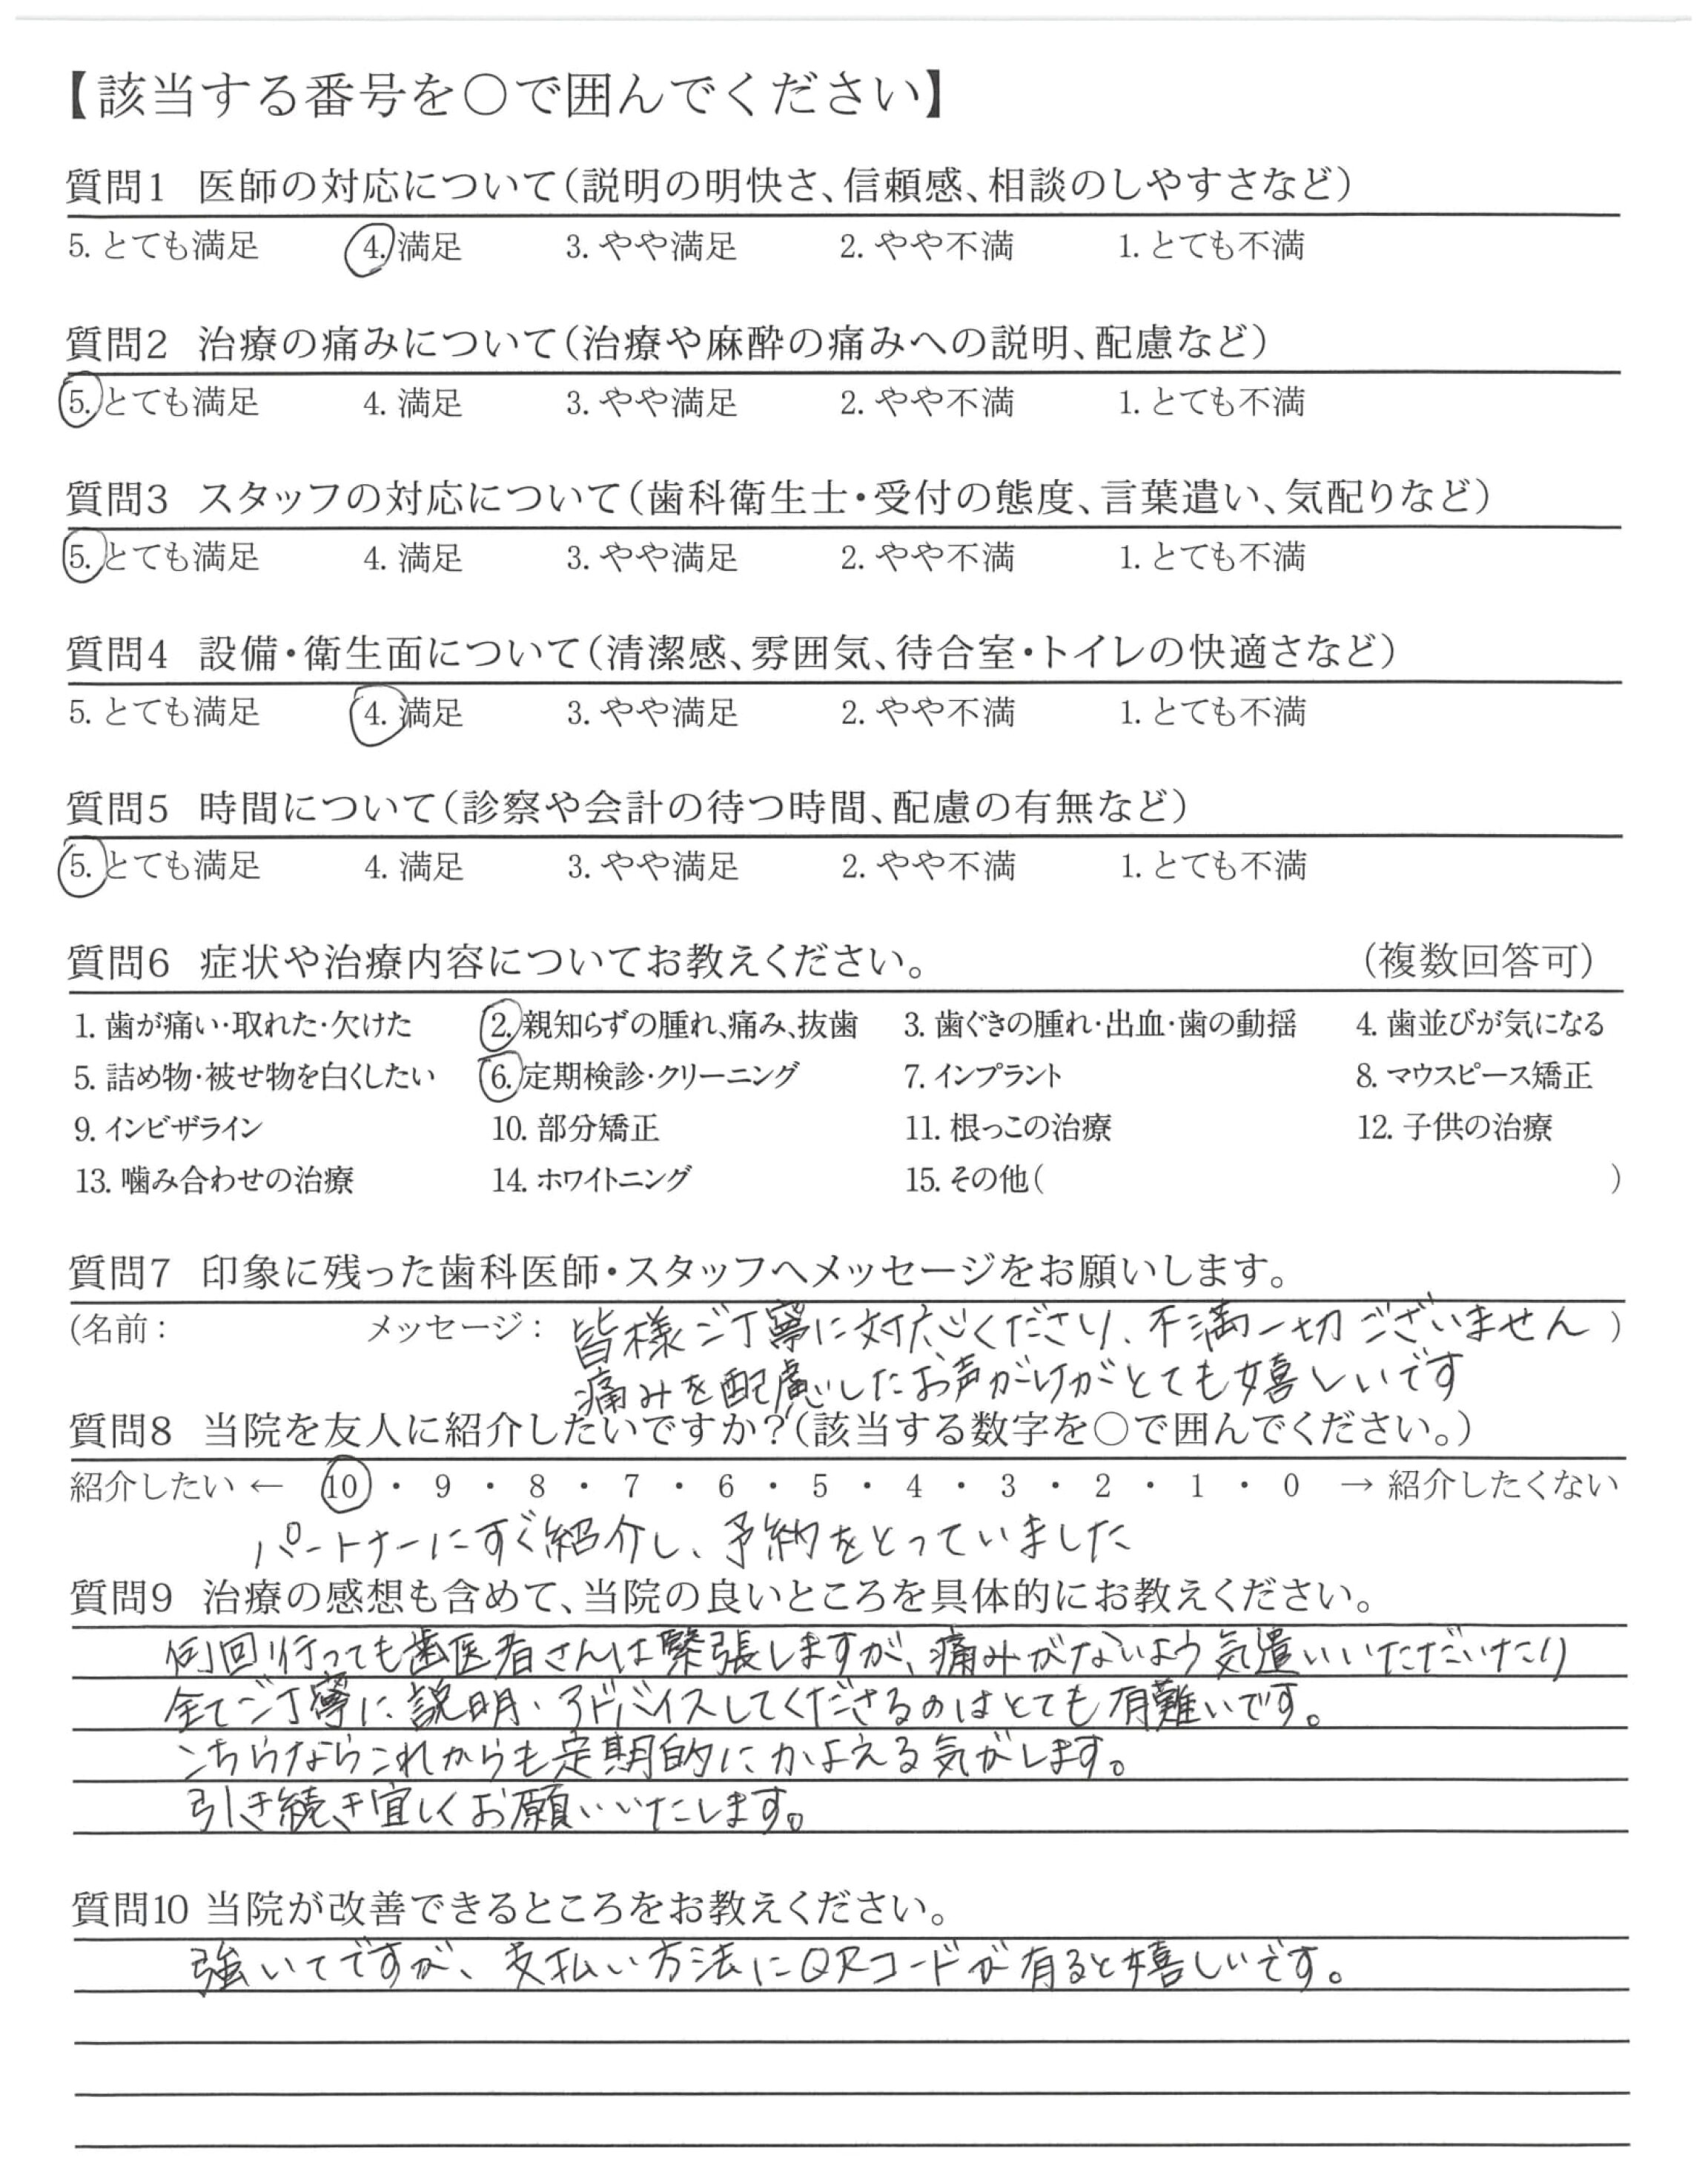 【該当する番号を〇で囲んでください】
質問1 医師の対応について（説明の明快さ、信頼感、相談のしやすさなど）
5. とても満足 4. 満足 3. やや満足 2. やや不満 1. とても不満
質問2 治療の痛みについて（治療や麻酔の痛みへの説明、配慮など）
5. とても満足 4. 満足 3. やや満足 2. やや不満 1. とても不満
質問3 スタッフの対応について（歯科衛生士・受付の態度、言葉遣い、気配りなど）
5. とても満足 4. 満足 3. やや満足 2. やや不満 1. とても不満
質問4 設備・衛生面について（清潔感、雰囲気、待合室・トイレの快適さなど）
5. とても満足 4. 満足 3. やや満足 2. やや不満 1. とても不満
質問5 時間について（診察や会計の待つ時間、配慮の有無など）
5. とても満足 4. 満足 3. やや満足 2. やや不満 1. とても不満
質問6 症状や治療内容についてお教えください。 （複数回答可）
1. 歯が痛い・取れた・欠けた 2. 親知らずの腫れ、痛み、抜歯 3. 歯ぐきの腫れ・出血・歯の動揺 4. 歯並びが気になる
5. 詰め物・被せ物を白くしたい 6. 定期検診・クリーニング 7. インプラント 8. マウスピース矯正
9. インビザライン 10. 部分矯正 11. 根っこの治療 12. 子供の治療
13. 噛み合わせの治療 14. ホワイトニング 15. その他( )
質問7 印象に残った歯科医師・スタッフへメッセージをお願いします。
(名前： メッセージ： 皆様ご丁寧に対応くださり、不満一切ございません )
痛みを配慮したお声がけがとても嬉しいです
質問8 当院を友人に紹介したいですか？（該当する数字を〇で囲んでください。）
紹介したい ← 10 ・ 9 ・ 8 ・ 7 ・ 6 ・ 5 ・ 4 ・ 3 ・ 2 ・ 1 ・ 0 → 紹介したくない
パートナーにすぐ紹介し、予約をとっていました
質問9 治療の感想も含めて、当院の良いところを具体的にお教えください。
何回行っても歯医者さんは緊張しますが、痛みがないよう気遣いいただいたり
全てご丁寧に説明・アドバイスしてくださるのはとても有難いです。
こちらならこれからも定期的にかよえる気がします。
引き続き宜しくお願いいたします。
質問10 当院が改善できるところをお教えください。
強いてですが、支払い方法にQRコードが有ると嬉しいです。